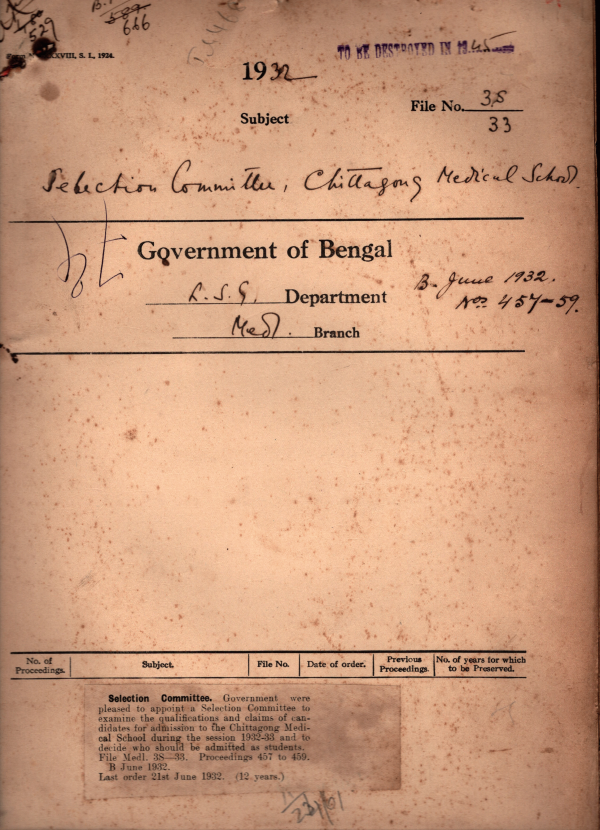 529
666
XXVIII, S. I., 1924.
TO BE DESTROYED IN 1945
1932
File No. 3S
33
Subject
Selection Committee, Chittagong Medical School.
Government of Bengal
L. S. G. Department
Medl. Branch
B. June 1932.
Nos. 457-59.
No. of Proceedings.
Subject.
File No.
Date of order.
Previous Proceedings.
No. of years for which to be Preserved.
Selection Committee. Government were
pleased to appoint a Selection Committee to
examine the qualifications and claims of can-
didates for admission to the Chittagong Medi-
cal School during the session 1932-33 and to
decide who should be admitted as students.
File Medl. 3S—33. Proceedings 457 to 459.
B June 1932.
Last order 21st June 1932. (12 years.)